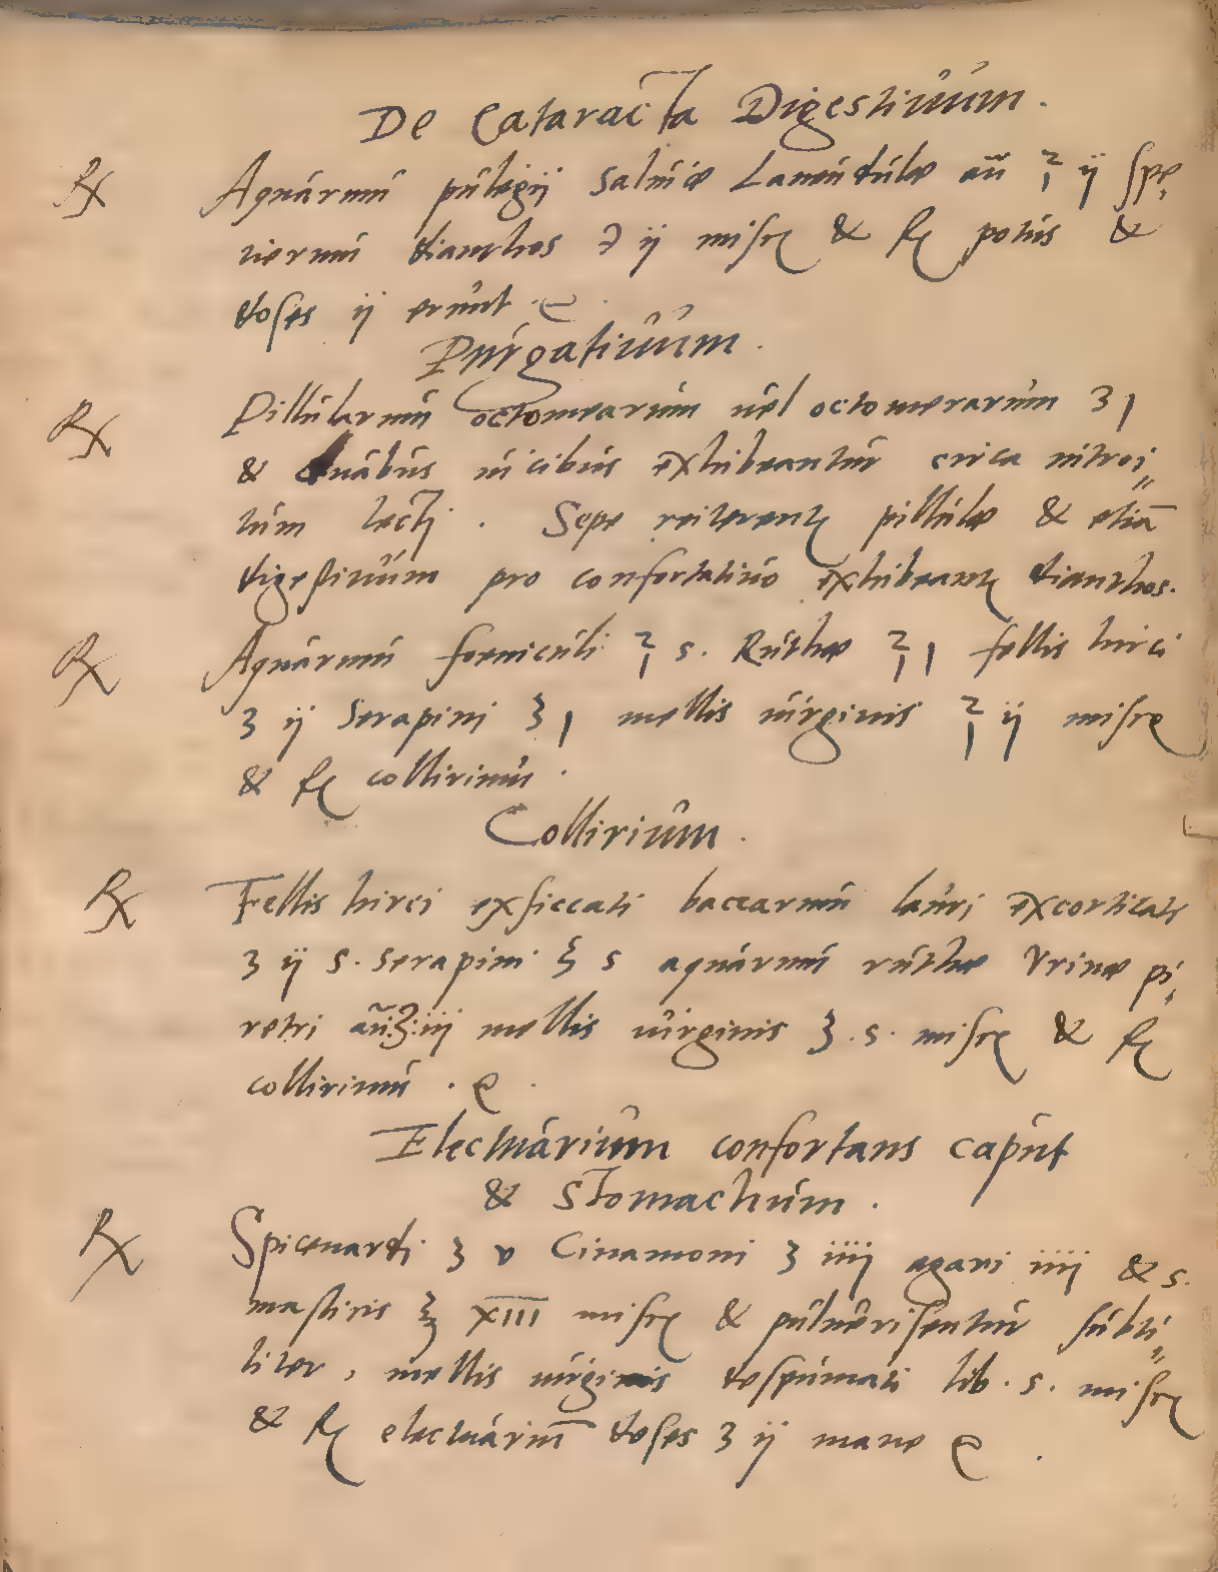 De Cataracta Digestiuum.
℞ Aquarum pulegij saluiæ Lauendulæ añ ℥ ij spe,
tierum dianthos ℈ ij misce & f̄ potus &
doses ij erunt
Purgatiuum.
℞ Pillularum octomearum uel octomerarum ʒ j
& duabus uicibus exhibeantur circa introi„
tum lecti. Sepe reiterent̄ pillulæ & etiā
digestiuum pro confortatiuo exhibeant̄ dianthos.
℞ Aquarum foeniculi ℥ s. Ruthæ ℥ j fellis hirci
ʒ ij serapini ʒ j mellis uirginis ℥ ij misce
& f̄ collirium.
Collirium.
℞ Fellis hirci exsiccati baccarum lauri excorticatɽ
ʒ ij s. serapini ʒ s aquarum ruthæ Vrinæ pi,
retri añ ʒ iij mellis uirginis ʒ. s. misce & f̄
collirium.
Electuarium confortans caput
& stomachum.
℞ Spicenardi ʒ v Cinamoni ʒ iiij agari iiij & s.
masticis ʒ XIII misce & puluerisentur subti„
liter, mellis uirginis despumati lib. s. misce
& f̄ electuariū doses ʒ ij mane